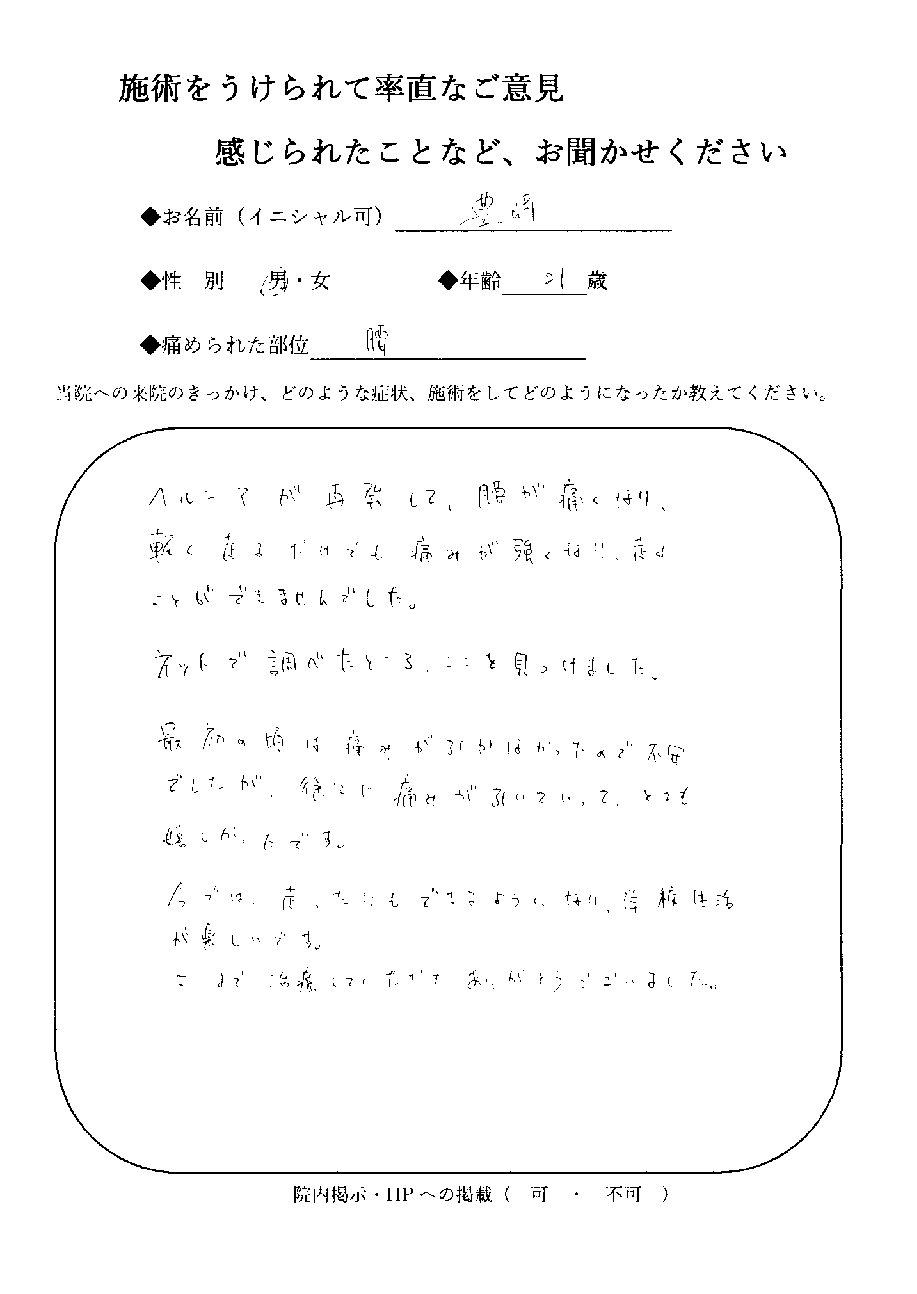 施術をうけられて率直なご意見
感じられたことなど、お聞かせください
◆お名前（イニシャル可） 豊崎
◆性 別 男・女 ◆年齢 21 歳
◆痛められた部位 腰
当院への来院のきっかけ、どのような症状、施術をしてどのようになったか教えてください。
ヘルニアが再発して、腰が痛くなり、
軽く走るだけでも痛みが強くなり、走る
ことができませんでした。
ネットで調べたところ、ここを見つけました。
最初の頃は痛みが引かなかったので不安
でしたが、徐々に痛みが引いていって、とても
嬉しかったです。
今では、走ったりもできるようになり、学校生活
が楽しいです。
ここまで治療していただきありがとうございました。
院内掲示・HPへの掲載（ 可 ・ 不可 ）